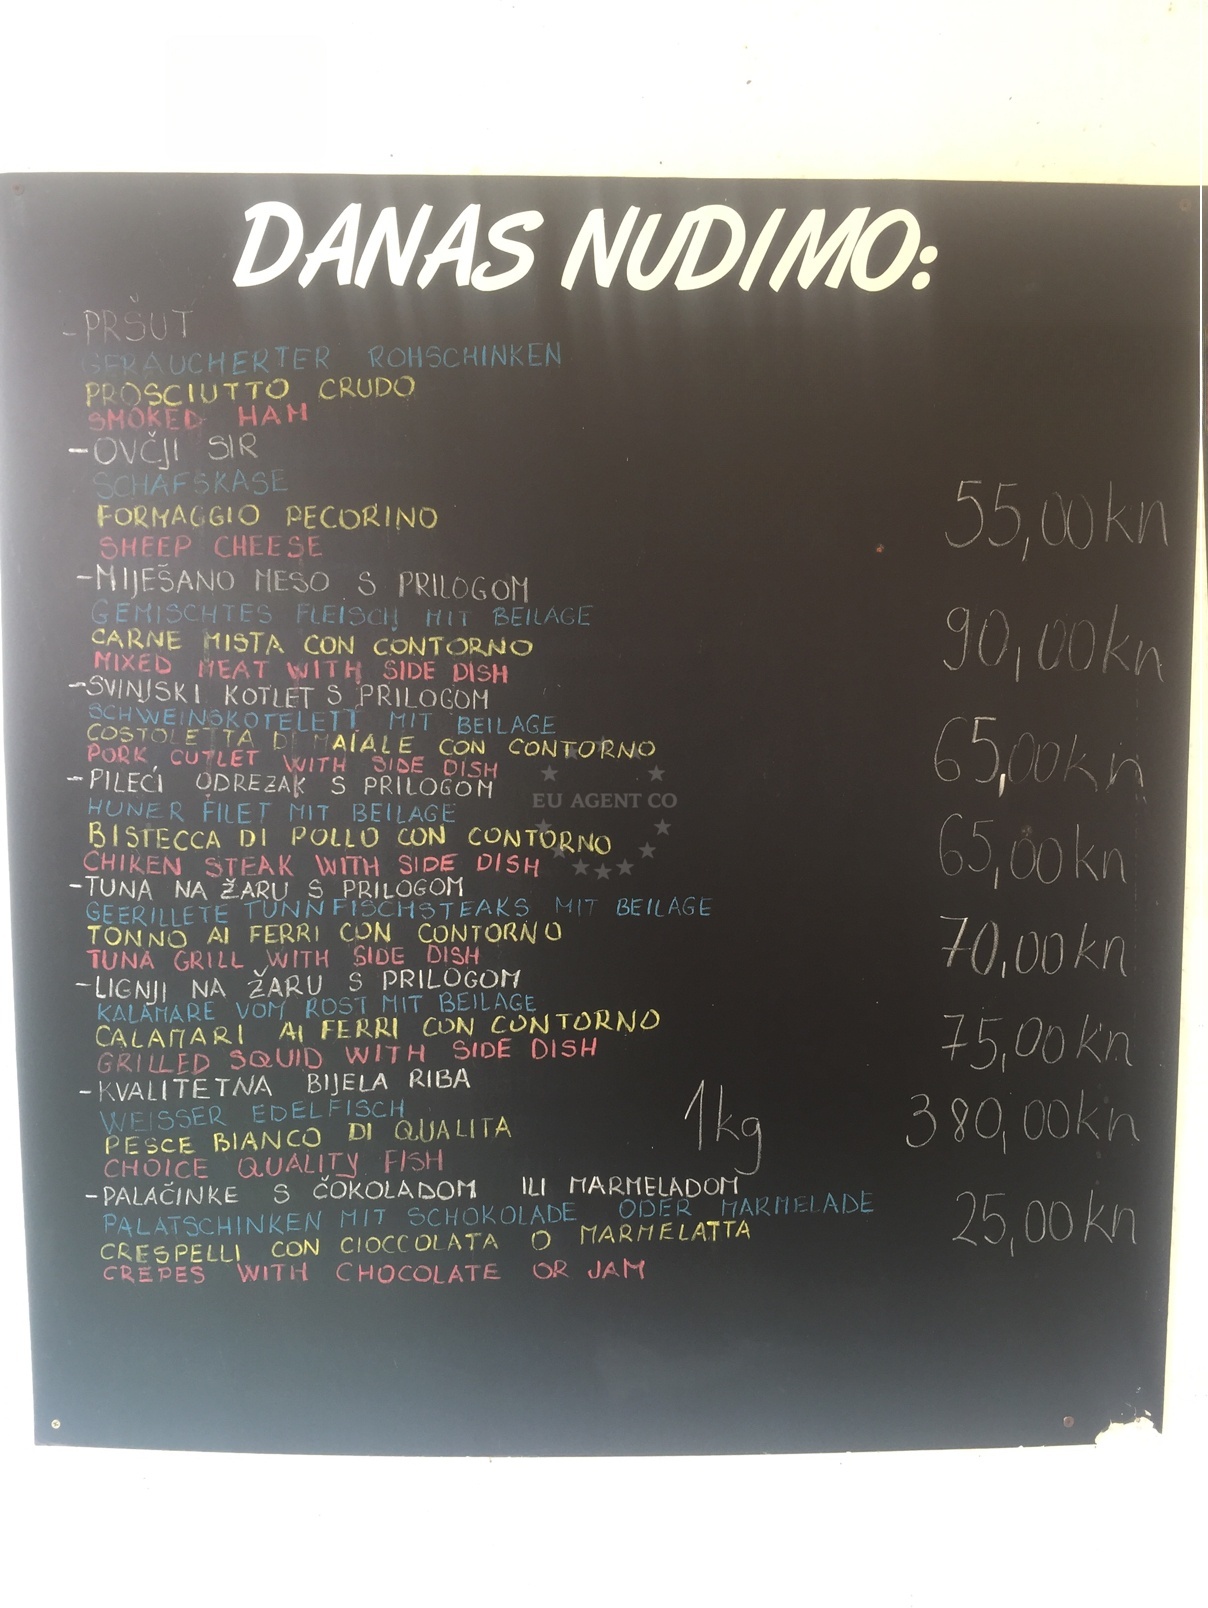 DANAS NUDIMO:
-PRŠUT
GERAUCHERTER ROHSCHINKEN
PROSCIUTTO CRUDO
SMOKED HAM
-OVČJI SIR
SCHAFSKASE
FORMAGGIO PECORINO 55,00kn
SHEEP CHEESE
-MIJEŠANO MESO S PRILOGOM
GEMISCHTES FLEISCH MIT BEILAGE
CARNE MISTA CON CONTORNO 90,00kn
MIXED MEAT WITH SIDE DISH
-SVINJSKI KOTLET S PRILOGOM
SCHWEINSKOTELETT MIT BEILAGE
COSTOLETTA DI MAIALE CON CONTORNO 65,00kn
PORK CUTLET WITH SIDE DISH
-PILEĆI ODREZAK S PRILOGOM
EU AGENT CO
HUNER FILET MIT BEILAGE
BISTECCA DI POLLO CON CONTORNO 65,00kn
CHIKEN STEAK WITH SIDE DISH
-TUNA NA ŽARU S PRILOGOM
GEERILLETE TUNNFISCHSTEAKS MIT BEILAGE
TONNO AI FERRI CON CONTORNO 70,00kn
TUNA GRILL WITH SIDE DISH
-LIGNJI NA ŽARU S PRILOGOM
KALAMARE VOM ROST MIT BEILAGE
CALAMARI AI FERRI CON CONTORNO 75,00kn
GRILLED SQUID WITH SIDE DISH
-KVALITETNA BIJELA RIBA
WEISSER EDELFISCH 1kg 380,00kn
PESCE BIANCO DI QUALITA
CHOICE QUALITY FISH
-PALAČINKE S ČOKOLADOM ILI MARMELADOM
PALATSCHINKEN MIT SCHOKOLADE ODER MARMELADE 25,00kn
CRESPELLI CON CIOCCOLATA O MARMELATTA
CREPES WITH CHOCOLATE OR JAM